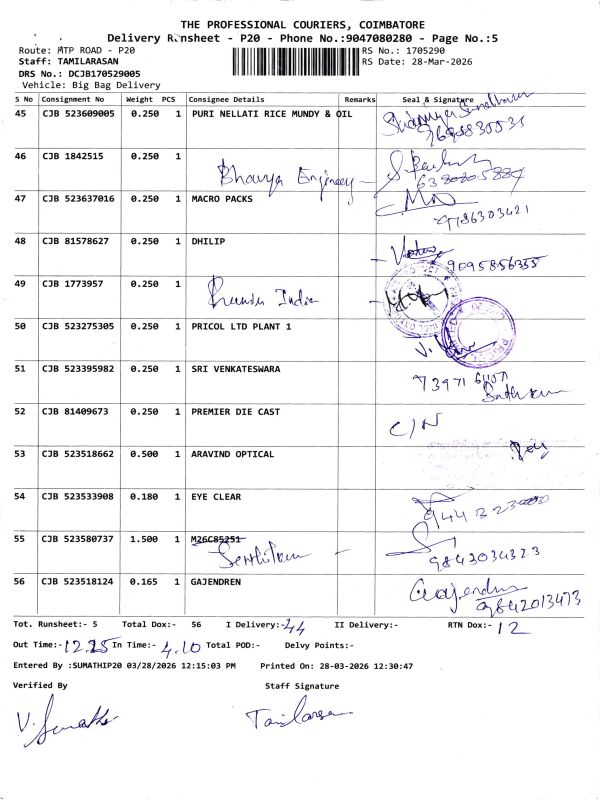 THE PROFESSIONAL COURIERS, COIMBATORE
Delivery Runsheet - P20 - Phone No.:9047080280 - Page No.:5
Route: MTP ROAD - P20
RS No.: 1705290
Staff: TAMILARASAN
RS Date: 28-Mar-2026
DRS No.: DCJB170529005
Vehicle: Big Bag Delivery
S No Consignment No Weight PCS Consignee Details Remarks Seal & Signature
45 CJB 523609005 0.250 1 PURI NELLATI RICE MUNDY & OIL
46 CJB 1842515 0.250 1
Bhavya Engineey - 6380205884
47 CJB 523637016 0.250 1 MACRO PACKS
9786303421
48 CJB 81578627 0.250 1 DHILIP
9095856355
49 CJB 1773957 0.250 1
India -
50 CJB 523275305 0.250 1 PRICOL LTD PLANT 1
51 CJB 523395982 0.250 1 SRI VENKATESWARA
73971 61071
52 CJB 81409673 0.250 1 PREMIER DIE CAST
C/N
53 CJB 523518662 0.500 1 ARAVIND OPTICAL
54 CJB 523533908 0.180 1 EYE CLEAR
55 CJB 523580737 1.500 1 M26C85251
9843034323
56 CJB 523518124 0.165 1 GAJENDREN
Gajendra
9842013473
Tot. Runsheet:- 5 Total Dox:- 56 I Delivery:- 44 II Delivery:- RTN Dox:- 12
Out Time:- 12.25 In Time:- 4.10 Total POD:- Delvy Points:-
Entered By :SUMATHIP20 03/28/2026 12:15:03 PM Printed On: 28-03-2026 12:30:47
Verified By Staff Signature
V. Sumathi Tamilarasan